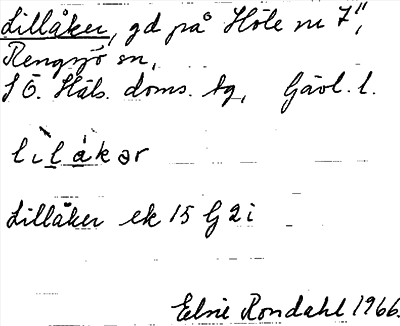 Lillåker, gd på Höle nr 7",
Rengsjö sn,
S Ö. Häls. doms. tg, Gävl. l.
lìlákər
Lillåker ek 15 G 2 i
Elsie Rondahl 1966.